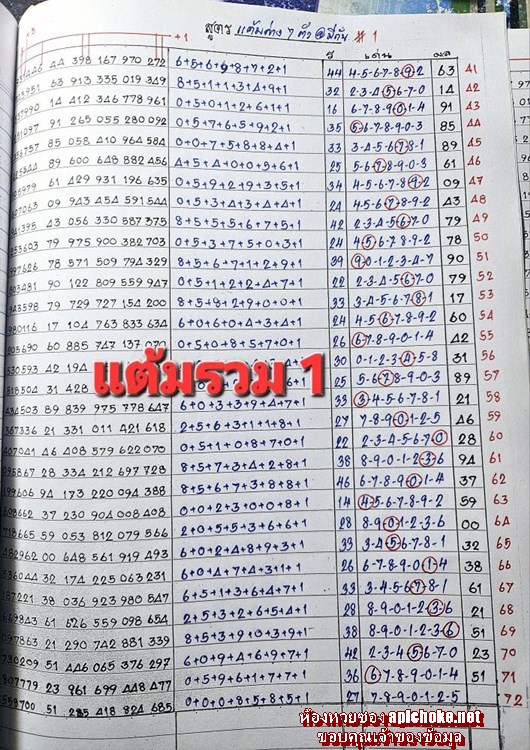 +1 สูตร แต้มต่าง 7 ตัว @ มีกัน # 1
เด่น ผล
446 44 398 167 970 272 6+5+6+9+8+7+2+1 44 4-5-6-7-8-9-2 63 41
951 63 913 335 019 349 8+5+1+1+3+4+9+1 32 2-3-4-5-6-7-0 14 42
990 14 412 346 778 961 0+5+0+1+2+6+1+1 16 6-7-8-9-0-1-4 91 43
097 91 265 055 280 092 0+5+7+6+5+9+2+1 35 5-6-7-8-9-0-3 85 44
756 85 058 410 964 584 0+0+7+5+8+8+4+1 33 3-4-5-6-7-8-1 89 45
544 89 600 648 882 456 4+5+4+0+0+5+6+1 25 5-6-7-8-9-0-3 61 46
979 61 429 931 196 635 0+5+9+2+9+3+5+1 34 4-5-6-7-8-9-2 09 47
063 09 943 454 591 544 0+5+3+4+3+4+4+1 24 4-5-6-7-8-9-2 43 48
395 43 056 330 587 375 8+5+5+5+6+7+5+1 42 2-3-4-5-6-7-0 79 49
603 79 975 900 382 703 0+5+3+7+5+0+3+1 24 4-5-6-7-8-9-2 78 50
626 78 571 509 794 329 8+5+6+7+1+2+9+1 39 9-0-1-2-3-4-7 90 51
481 90 122 809 559 947 0+5+1+2+2+4+7+1 22 2-3-4-5-6-7-0 79 52
598 79 729 727 154 200 8+5+8+2+9+0+0+1 33 3-4-5-6-7-8-1 17 53
116 17 104 763 833 634 6+0+6+0+4+3+4+1 24 4-5-6-7-8-9-2 60 54
690 60 885 747 137 070 26 6-7-8-9-0-1-4 42 55
593 42 194 30 0-1-2-3-4-5-8 31 56
504 31 428 25 5-6-7-8-9-0-3 89 57
503 89 839 975 778 647 6+0+3+3+9+4+7+1 33 3-4-5-6-7-8-1 21 58
336 21 331 011 421 618 2+5+6+3+1+1+8+1 27 7-8-9-0-1-2-5 46 59
041 46 408 579 622 070 0+5+1+0+8+7+0+1 22 2-3-4-5-6-7-0 28 60
867 28 334 212 697 728 8+5+7+3+4+2+8+1 38 8-9-0-1-2-3-6 94 61
606 94 173 220 094 388 8+5+6+7+3+8+8+1 46 6-7-8-9-0-1-4 37 62
662 37 230 904 008 408 0+0+2+3+0+0+8+1 14 4-5-6-7-8-9-2 59 63
665 59 053 812 079 566 2+0+5+5+3+6+6+1 28 8-9-0-1-2-3-6 00 64
962 00 648 561 919 493 6+0+2+4+8+9+3+1 33 3-4-5-6-7-8-1 32 65
044 32 174 225 063 231 6+0+4+7+4+3+1+1 26 6-7-8-9-0-1-4 38 66
221 38 036 923 980 547 6+5+1+3+6+4+7+1 33 3-4-5-6-7-8-1 61 67
843 61 626 559 098 654 2+5+3+2+6+5+4+1 28 8-9-0-1-2-3-6 21 68
863 21 290 742 881 339 8+5+3+9+0+3+9+1 38 8-9-0-1-2-3-6 51 69
209 51 446 065 376 297 6+0+9+4+6+9+7+1 42 2-3-4-5-6-7-0 23 70
779 23 961 699 448 477 0+5+9+6+1+7+7+1 36 6-7-8-9-0-1-4 51 71
700 51 285 418 824 685 0+0+0+8+5+8+5+1 27 7-8-9-0-1-2-5 72
แต้มรวม 1
ห้องหวยซอง apichoke.net
ขอบคุณเจ้าของข้อมูล